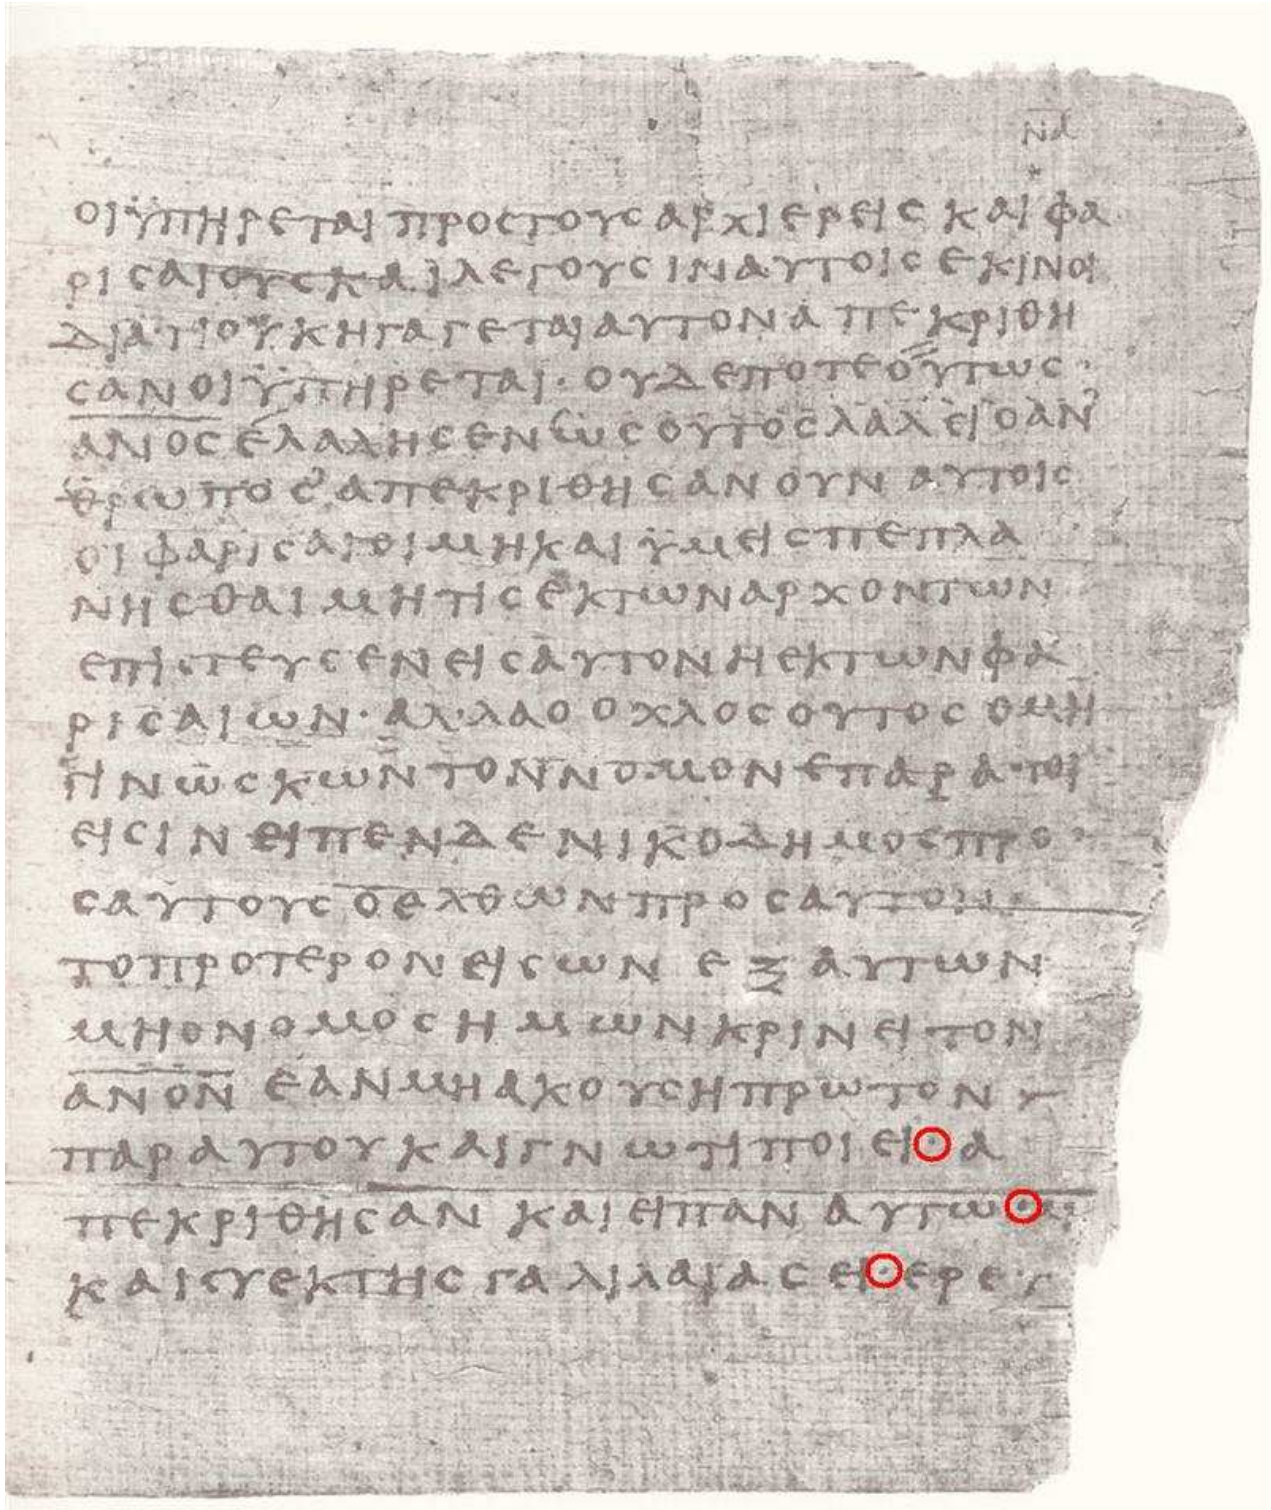 ΝΔ
ΟΙ ΫΠΗΡΕΤΑΙ ΠΡΟС ΤΟΥС ΑΡΧΙΕΡΕΙС ΚΑΙ ΦΑ
ΡΙСΑΙΟΥС ΚΑΙ ΛΕΓΟΥСΙΝ ΑΥΤΟΙС ΕΚΙΝΟΙ
ΔΙΑ ΤΙ ΟΥΚ ΗΓΑΓΕΤΑΙ ΑΥΤΟΝ ΑΠΕΚΡΙΘΗ
СΑΝ ΟΙ ΫΠΗΡΕΤΑΙ· ΟΥΔΕΠΟΤΕ ΟΥΤΩС
ΑΝΟС ΕΛΑΛΗСΕΝ ΩС ΟΥΤΟС ΛΑΛΕΙ Ο ΑΝ
ΘΡΩΠΟС ΑΠΕΚΡΙΘΗСΑΝ ΟΥΝ ΑΥΤΟΙС
ΟΙ ΦΑΡΙСΑΙΟΙ ΜΗ ΚΑΙ ΫΜΕΙС ΠΕΠΛΑ
ΝΗСΘΑΙ ΜΗ ΤΙС ΕΚ ΤΩΝ ΑΡΧΟΝΤΩΝ
ΕΠΙСΤΕΥСΕΝ ΕΙС ΑΥΤΟΝ Η ΕΚ ΤΩΝ ΦΑ
ΡΙСΑΙΩΝ· ΑΛΛΑ Ο ΟΧΛΟС ΟΥΤΟС Ο ΜΗ
ΓΙΝΩСΚΩΝ ΤΟΝ ΝΟΜΟΝ ΕΠΑΡΑΤΟΙ
ΕΙСΙΝ ΕΙΠΕΝ ΔΕ ΝΙΚΟΔΗΜΟС ΠΡΟ
С ΑΥΤΟΥС Ο ΕΛΘΩΝ ΠΡΟС ΑΥΤΟΝ
ΤΟ ΠΡΟΤΕΡΟΝ ΕΙС ΩΝ ΕΞ ΑΥΤΩΝ
ΜΗ Ο ΝΟΜΟС ΗΜΩΝ ΚΡΙΝΕΙ ΤΟΝ
ΑΝΟΝ ΕΑΝ ΜΗ ΑΚΟΥСΗ ΠΡΩΤΟΝ
ΠΑΡ ΑΥΤΟΥ ΚΑΙ ΓΝΩ ΤΙ ΠΟΙΕΙ· Α
ΠΕΚΡΙΘΗСΑΝ ΚΑΙ ΕΙΠΑΝ ΑΥΤΩ·
ΚΑΙ СΥ ΕΚ ΤΗС ΓΑΛΙΛΑΙΑС ΕΙ· ΕΡΕ